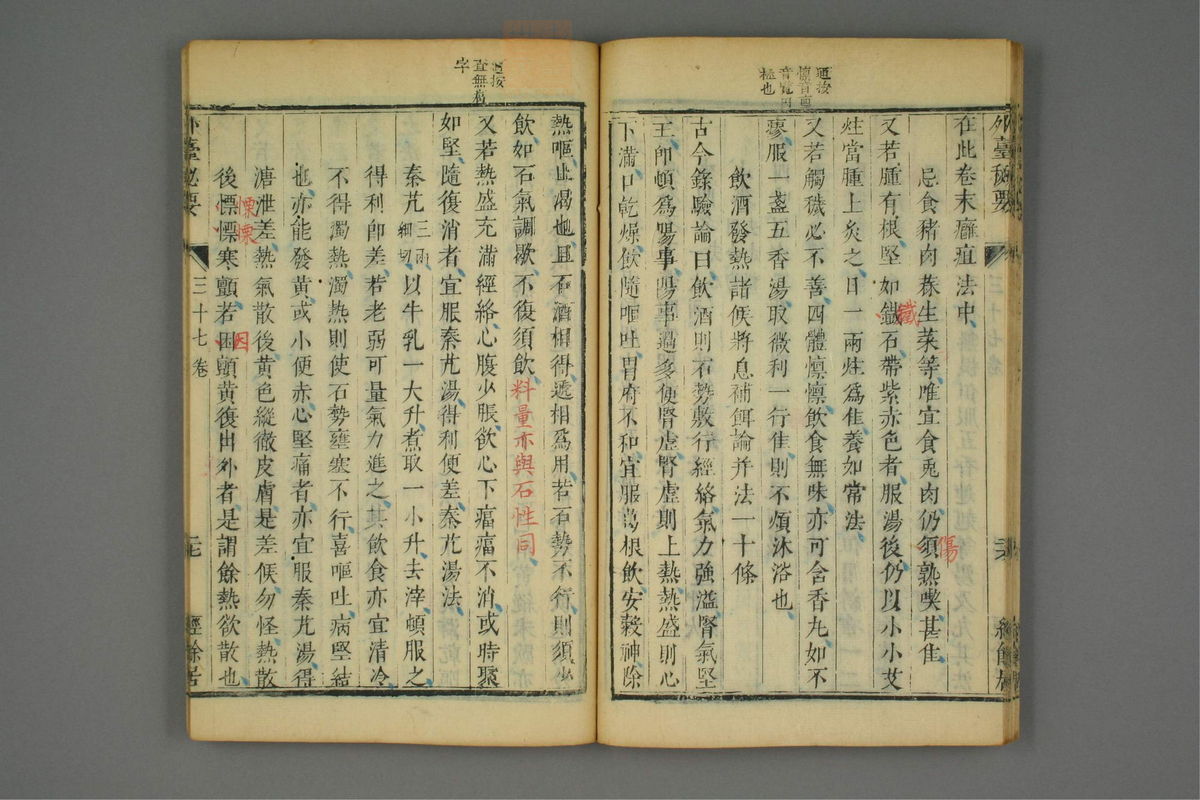 在此卷末癰疽法中
忌食豬肉蒜生菜等唯宜食兎肉仍須熟喫甚佳
又若腫有根堅如鐵石帶紫赤色者服湯後仍以小小艾
炷當腫上灸之日一兩炷爲佳養如常法
又若觸穢必不善四體懍懍飲食無味亦可含香丸如不
瘳服一盞五香湯取微利一行佳則不煩沐浴也
飲酒發熱諸候將息補餌論并法一十條
古今錄驗論曰飲酒則石勢敷行經絡氣力強溢腎氣堅
王卽頓爲陽事陽事過多便腎虛腎虛則上熱熱盛則心
下滿口乾燥飲隨嘔吐胃府不和宜服葛根飲安穀神除
外臺秘要
通按
懍音
也
熱嘔止渴也且石酒相得遞相爲用若石勢不行則須少
飲如石氣調歇不復須飲料量亦與石性同
又若熱盛充滿經絡心腹少脹欲心下㿉㿉不消或時聚
如堅隨復消者宜服秦艽湯得利便差秦艽湯法
秦艽三兩細切以牛乳一大升煮取一小升去滓頓服之
得利卽差若老弱可量氣力進之其飲食亦宜清冷
不得濁熱濁熱則使石勢壅塞不行喜嘔吐病堅結
也亦能發黃或小便赤心堅痛者亦宜服秦艽湯得
溏泄差熱氣散後黃色縱徹皮膚是差候勿怪熱散
後慄慄寒顫若因顫黃復出外者是謂餘熱欲散也
外臺秘要
三十七卷
經餘居
通按
無
字
鐵
傷
慄慄
因